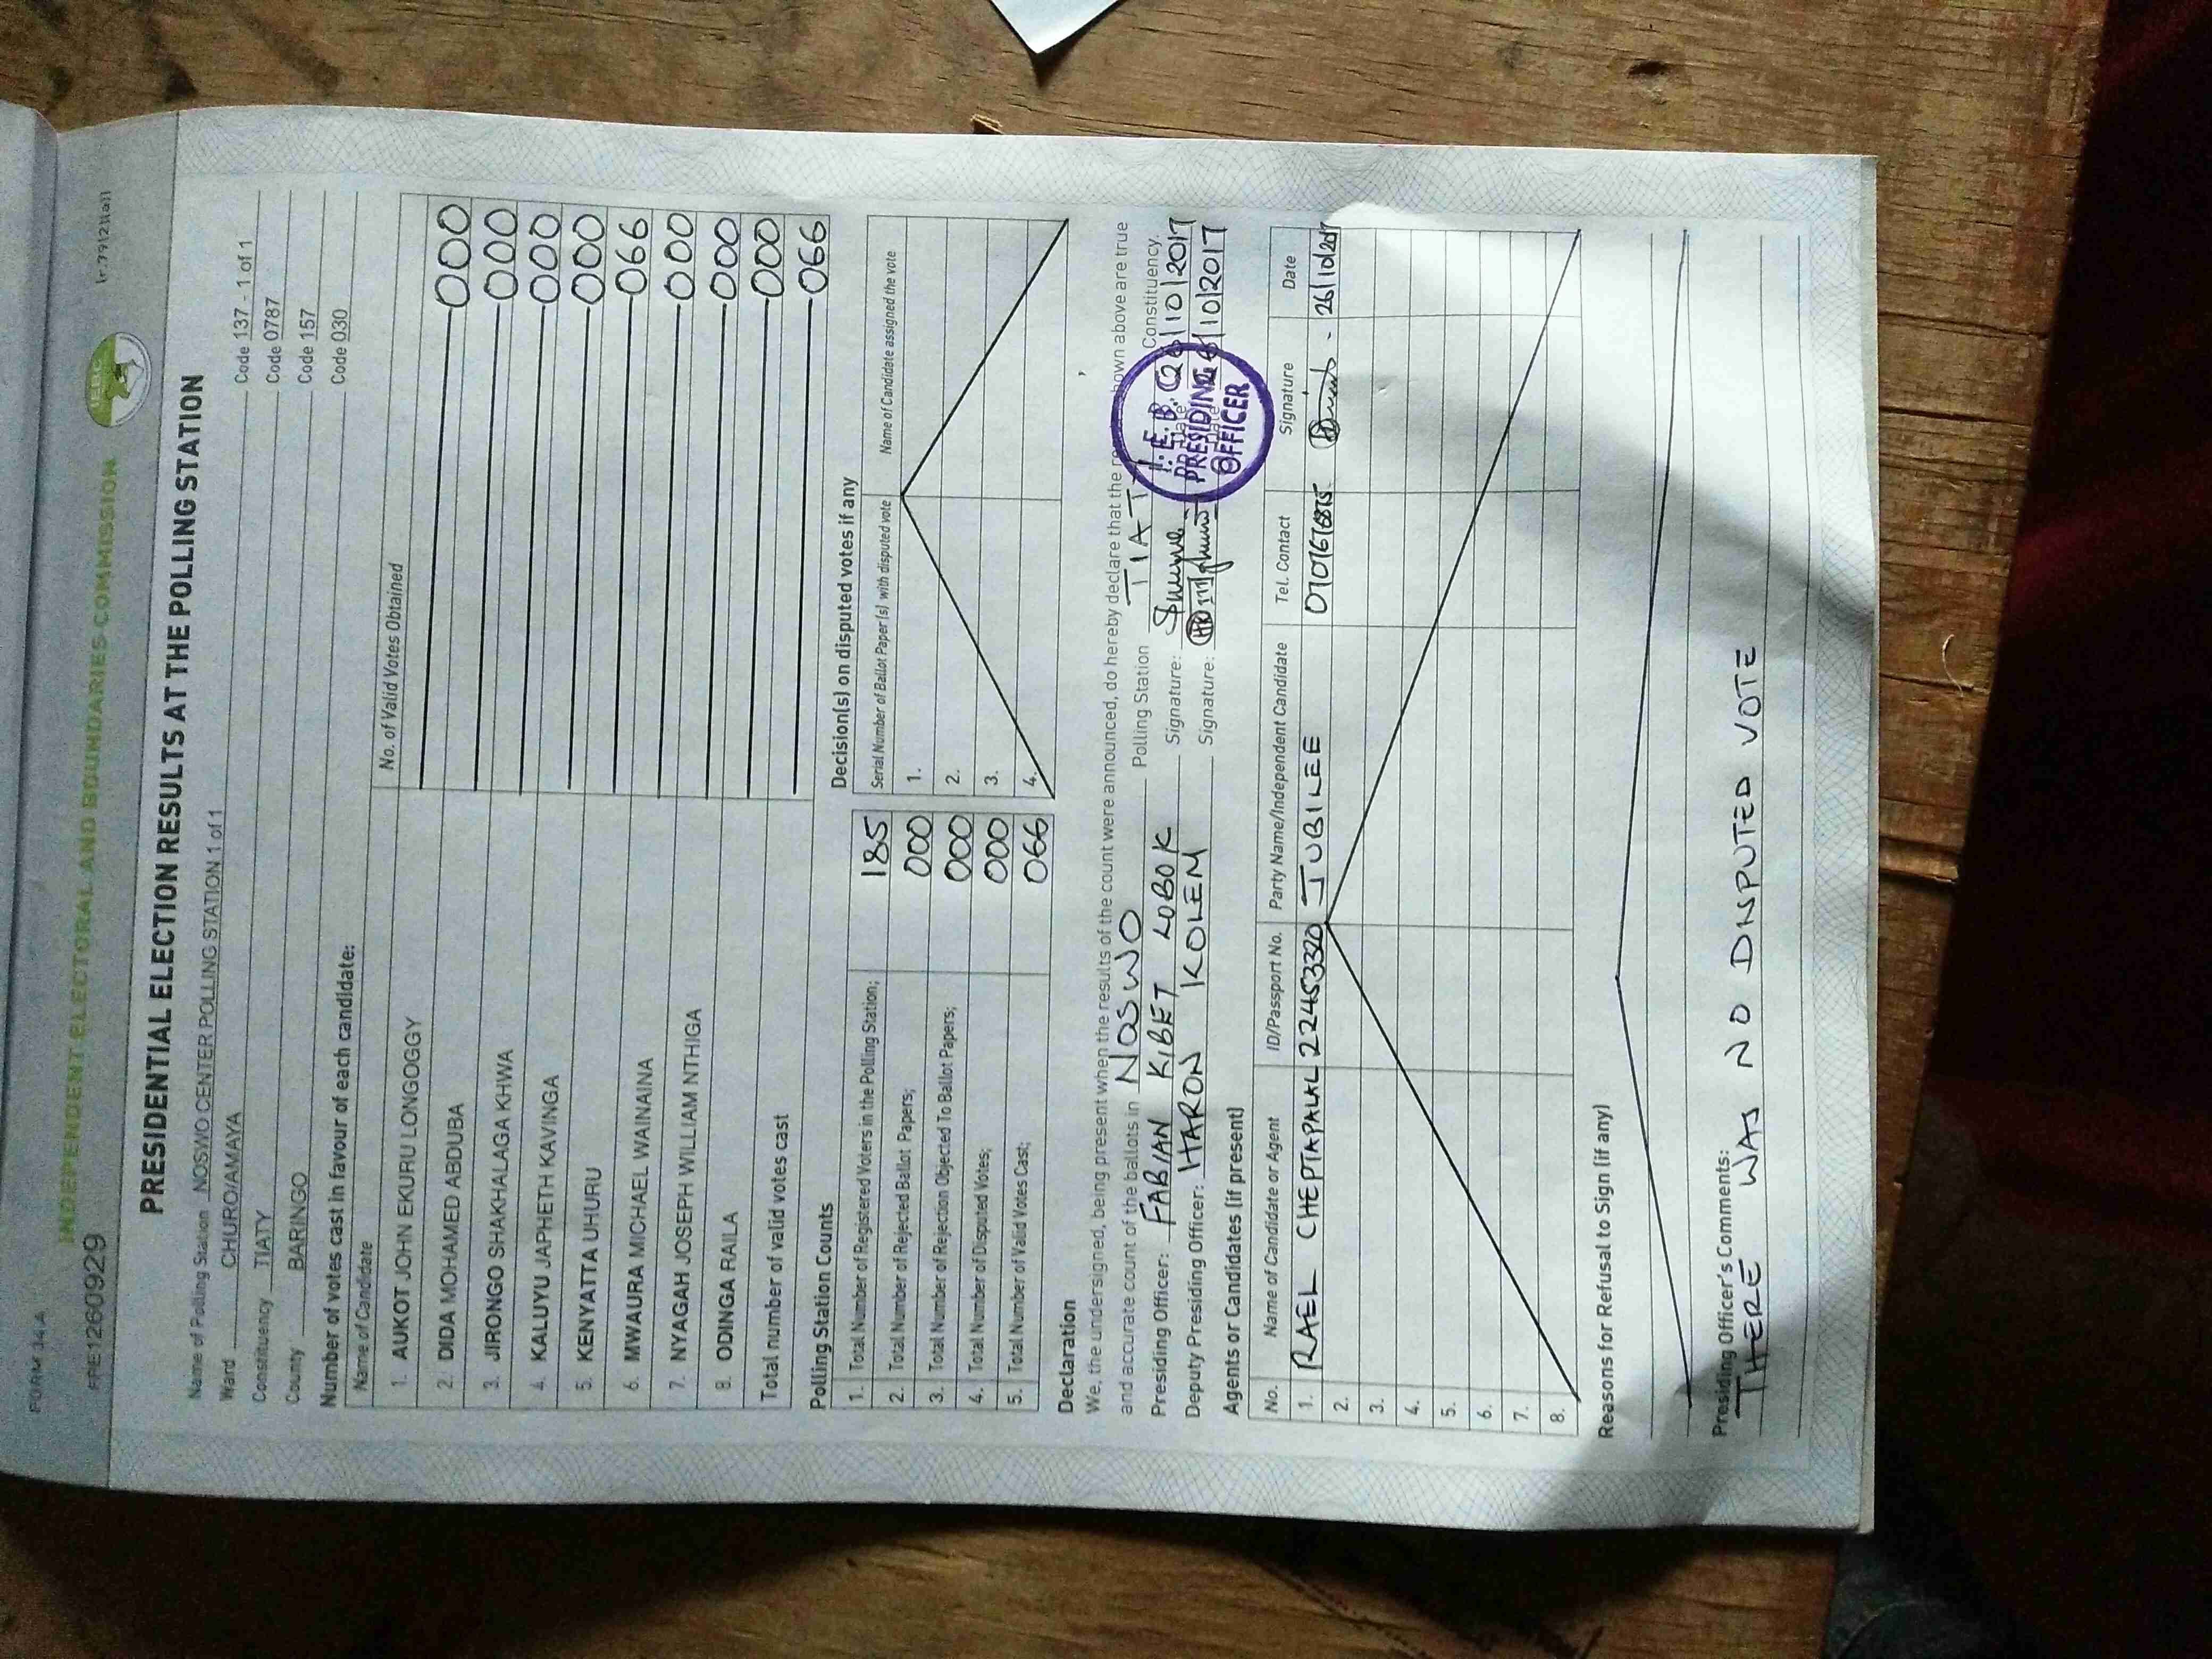 FORM 34A
INDEPENDENT ELECTORAL AND BOUNDARIES COMMISSION
PRE1260929
(r.79(2)(a))
IEBC
PRESIDENTIAL ELECTION RESULTS AT THE POLLING STATION
Name of Polling Station NOSWO CENTER POLLING STATION 1 of 1 Code 137 - 1 of 1
Ward CHURO/AMAYA Code 0787
Constituency TIATY Code 157
County BARINGO Code 030
Number of votes cast in favour of each candidate:
Name of Candidate No. of Valid Votes Obtained
1. AUKOT JOHN EKURU LONGOGGY 000
2. DIDA MOHAMED ABDUBA 000
3. JIRONGO SHAKHALAGA KHWA 000
4. KALUYU JAPHETH KAVINGA 000
5. KENYATTA UHURU 066
6. MWAURA MICHAEL WAINAINA 000
7. NYAGAH JOSEPH WILLIAM NTHIGA 000
8. ODINGA RAILA 000
Total number of valid votes cast 066
Polling Station Counts
1. Total Number of Registered Voters in the Polling Station; 185
2. Total Number of Rejected Ballot Papers; 000
3. Total Number of Rejection Objected To Ballot Papers; 000
4. Total Number of Disputed Votes; 000
5. Total Number of Valid Votes Cast; 066
Decision(s) on disputed votes if any
Serial Number of Ballot Paper(s) with disputed vote Name of Candidate assigned the vote
1.
2.
3.
4.
Declaration
We, the undersigned, being present when the results of the count were announced, do hereby declare that the results shown above are true
and accurate count of the ballots in NOSWO Polling Station TIATY Constituency.
Presiding Officer: FABIAN KIBET LOBOK Signature: Date: 26/10/2017
Deputy Presiding Officer: HARON KOLEM Signature: Date: 26/10/2017
I.E.B.C.
PRESIDING
OFFICER
Agents or Candidates (if present)
No. Name of Candidate or Agent ID/Passport No. Party Name/Independent Candidate Tel. Contact Signature Date
1. RAEL CHEPTAPALAL 22453320 JUBILEE 26/10/2017
2.
3.
4.
5.
6.
7.
8.
Reasons for Refusal to Sign (if any)
Presiding Officer's Comments:
THERE WAS NO DINPUTED VOTE